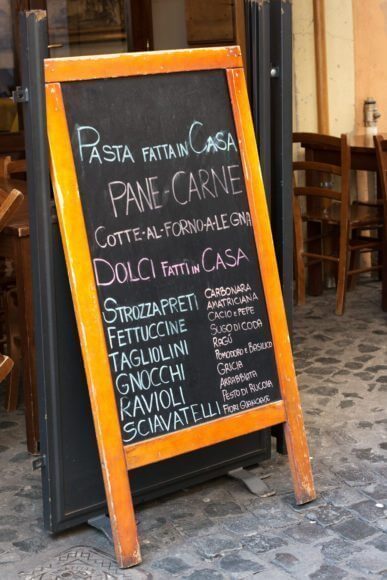 PASTA FATTA IN CASA
PANE-CARNE
COTTE-AL-FORNO-A-LEGNA
DOLCI FATTI IN CASA
STROZZAPRETI
FETTUCCINE
TAGLIOLINI
GNOCCHI
RAVIOLI
SCIAVATELLI
CARBONARA
AMATRICIANA
CACIO E PEPE
SUGO DI CODA
RAGÚ
POMODORO E BASILICO
GRICIA
ARRABBIATA
PESTO DI RUCOLA
FIORI